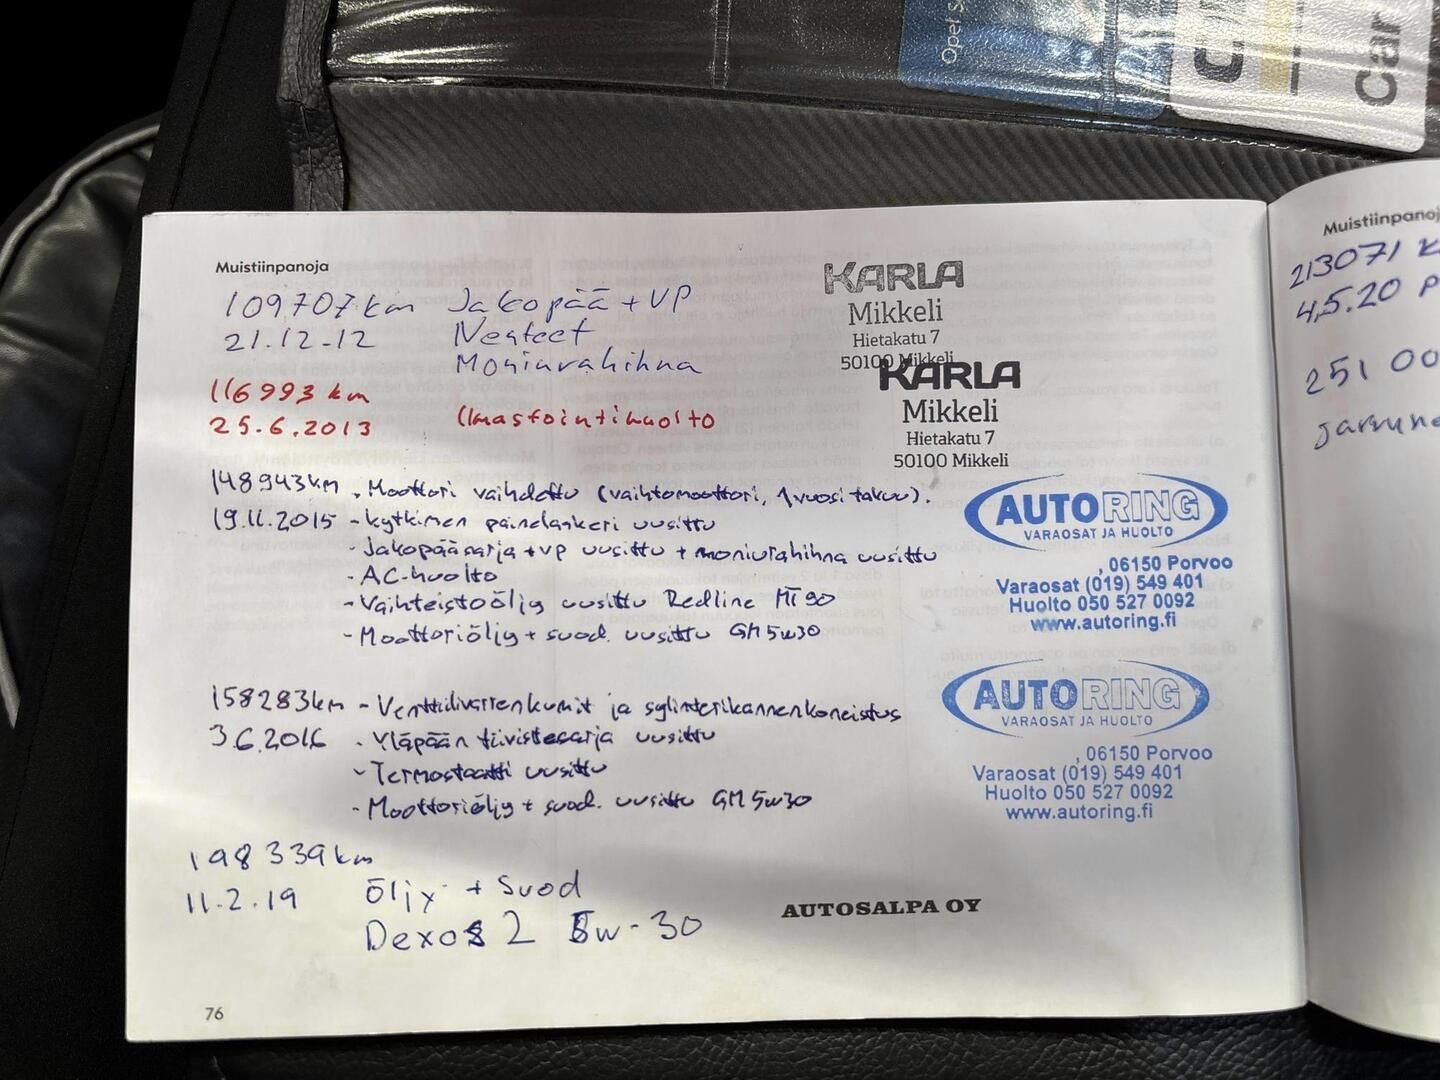 Opel S
Car
Muistiinpanoja
109707km Jakopää + VP
21.12-12 Nesteet
Moniurahihna
116993 km
25.6.2013 Ilmastointihuolto
KARLA
Mikkeli
Hietakatu 7
50100 Mikkeli
KARLA
Mikkeli
Hietakatu 7
50100 Mikkeli
148943km - Moottori vaihdettu (vaihtomoottori, 1 vuosi takuu).
19.11.2015 - kytkimen painelaakeri uusittu
- Jakopääsarja + vp uusittu + moniurahihna uusittu
- AC-huolto
- Vaihteistoöljy uusittu Redline MT90
- Moottoriöljy + suod. uusittu GM 5w30
AUTORING
VARAOSAT JA HUOLTO
, 06150 Porvoo
Varaosat (019) 549 401
Huolto 050 527 0092
www.autoring.fi
158283km - Venttiilivarrenkumit ja sylinterikannenkoneistus
3.6.2016 - Yläpään tiivistesarja uusittu
- Termostaatti uusittu
- Moottoriöljy + suod. uusittu GM 5w30
AUTORING
VARAOSAT JA HUOLTO
, 06150 Porvoo
Varaosat (019) 549 401
Huolto 050 527 0092
www.autoring.fi
198339km
11.2.19 Öljy + Suod
Dexos 2 5w-30
AUTOSALPA OY
76
Muistiinpanoj
213071 k
4,5.20 P
251 00